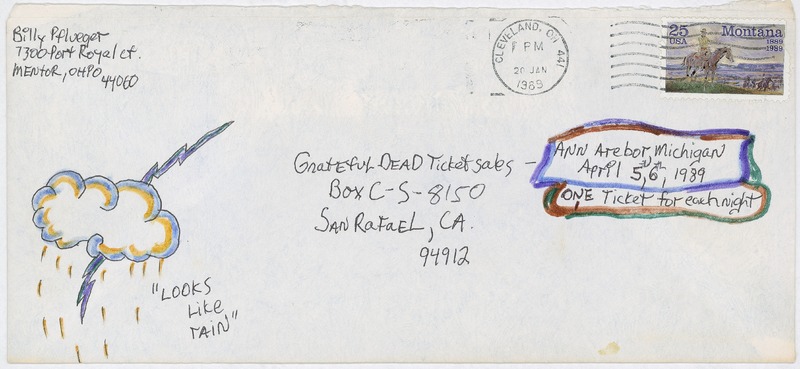 Billy Pflueger
7300-Port Royal ct.
MENTOR, OHIO
44060
CLEVELAND, OH 441
PM
20 JAN
1989
25
USA
Montana
1889
1989
GRATEFUL DEAD Ticket sales -
Box C-S-8150
SAN RAFAEL, CA.
94912
ANN Arebor, Michigan
April 5th, 6th, 1989
ONE Ticket for each night
"LOOKS
Like
rAIN"